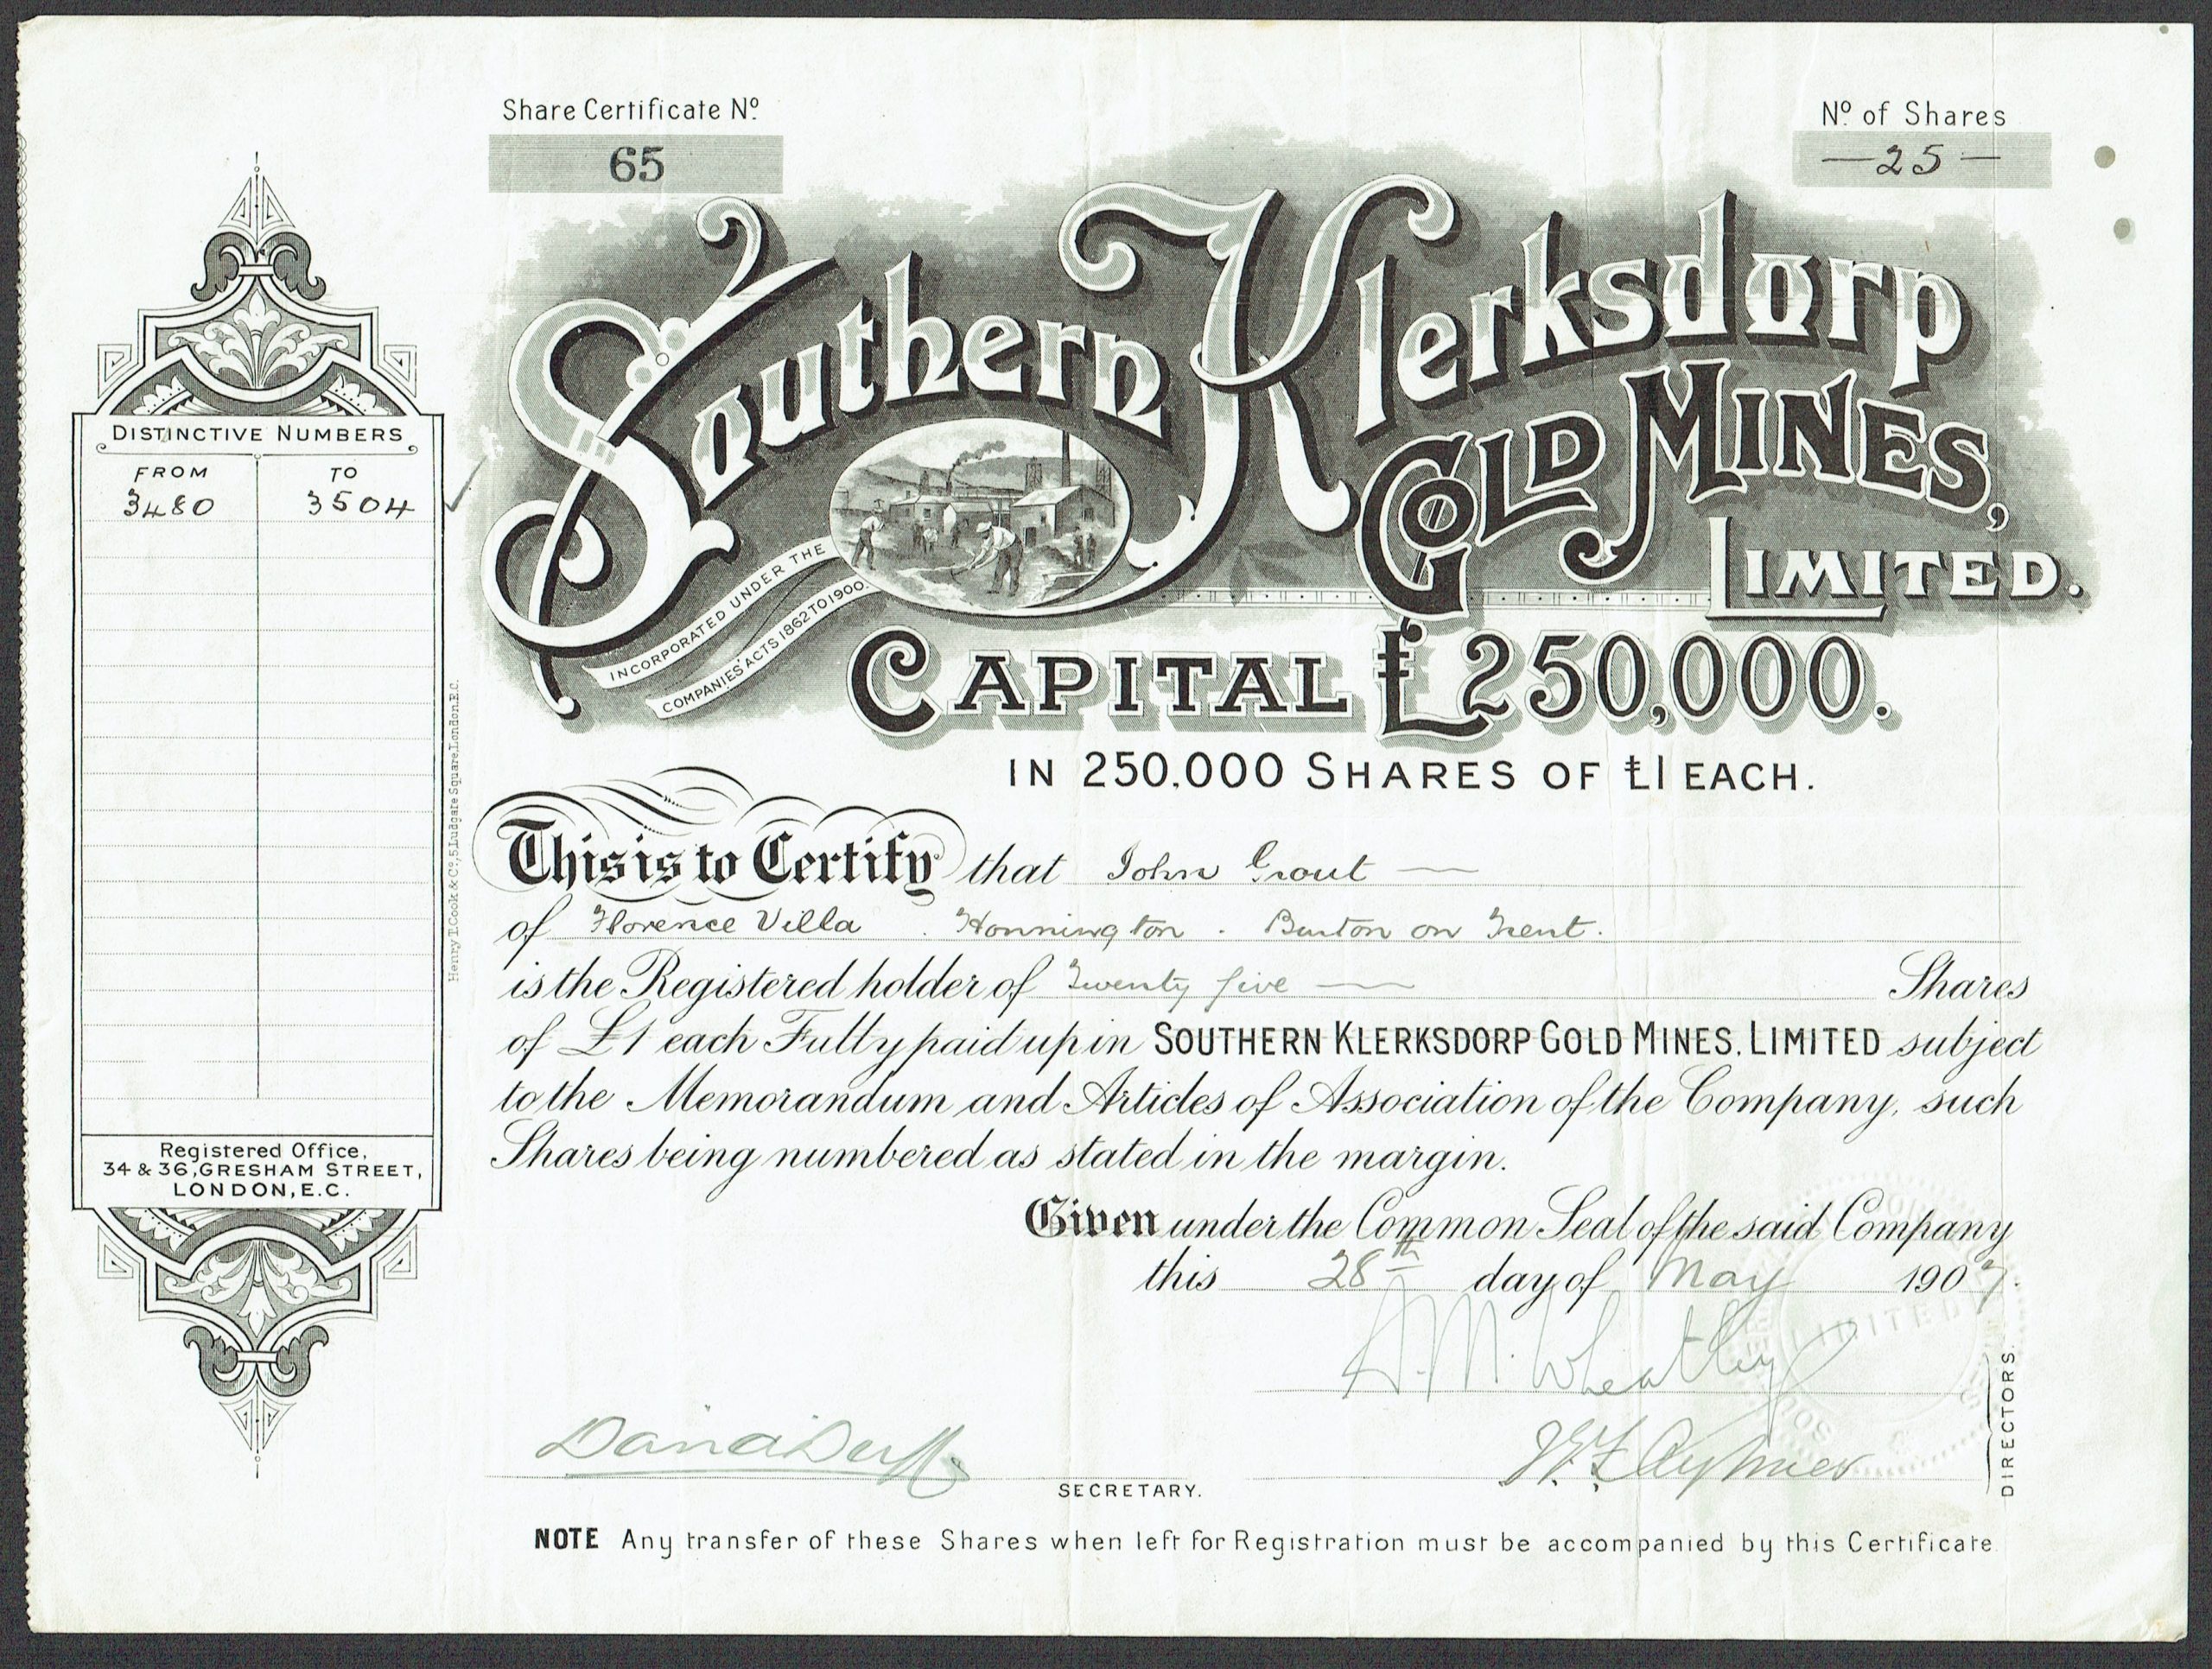 Share Certificate Nº
65
Nº of Shares
— 25 —
Southern Klerksdorp
GOLD MINES,
LIMITED.
INCORPORATED UNDER THE
COMPANIES ACTS 1862 TO 1900.
CAPITAL £250,000.
IN 250,000 SHARES OF £1 EACH.
DISTINCTIVE NUMBERS
FROM TO
3480 3504
Registered Office,
34 & 36, GRESHAM STREET,
LONDON, E.C.
Henry T. Cook & Co, 5 Ludgate Square, London, E.C.
This is to Certify that John Grout
of Florence Villa . Honnington . Burton on Trent.
is the Registered holder of Twenty five Shares
of £1 each Fully paid up in SOUTHERN KLERKSDORP GOLD MINES. LIMITED subject
to the Memorandum and Articles of Association of the Company, such
Shares being numbered as stated in the margin.
Given under the Common Seal of the said Company
this 28th day of May 1907.
A. M. Wheatley
Aylmer
DIRECTORS.
Duff
SECRETARY.
LIMITED
NOTE Any transfer of these Shares when left for Registration must be accompanied by this Certificate